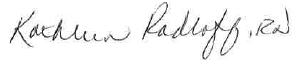 Kathleen Radloff, RN